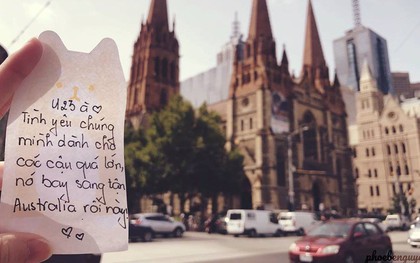 U23 à ♡
Tình yêu chúng
mình dành cho
các cậu quá lớn,
nó bay sang tận
Australia rồi này
phoebenguy